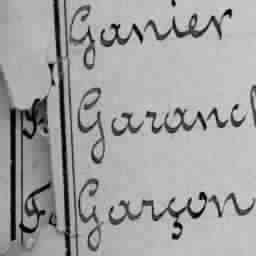 Ganier
Garancl
F. Garçon